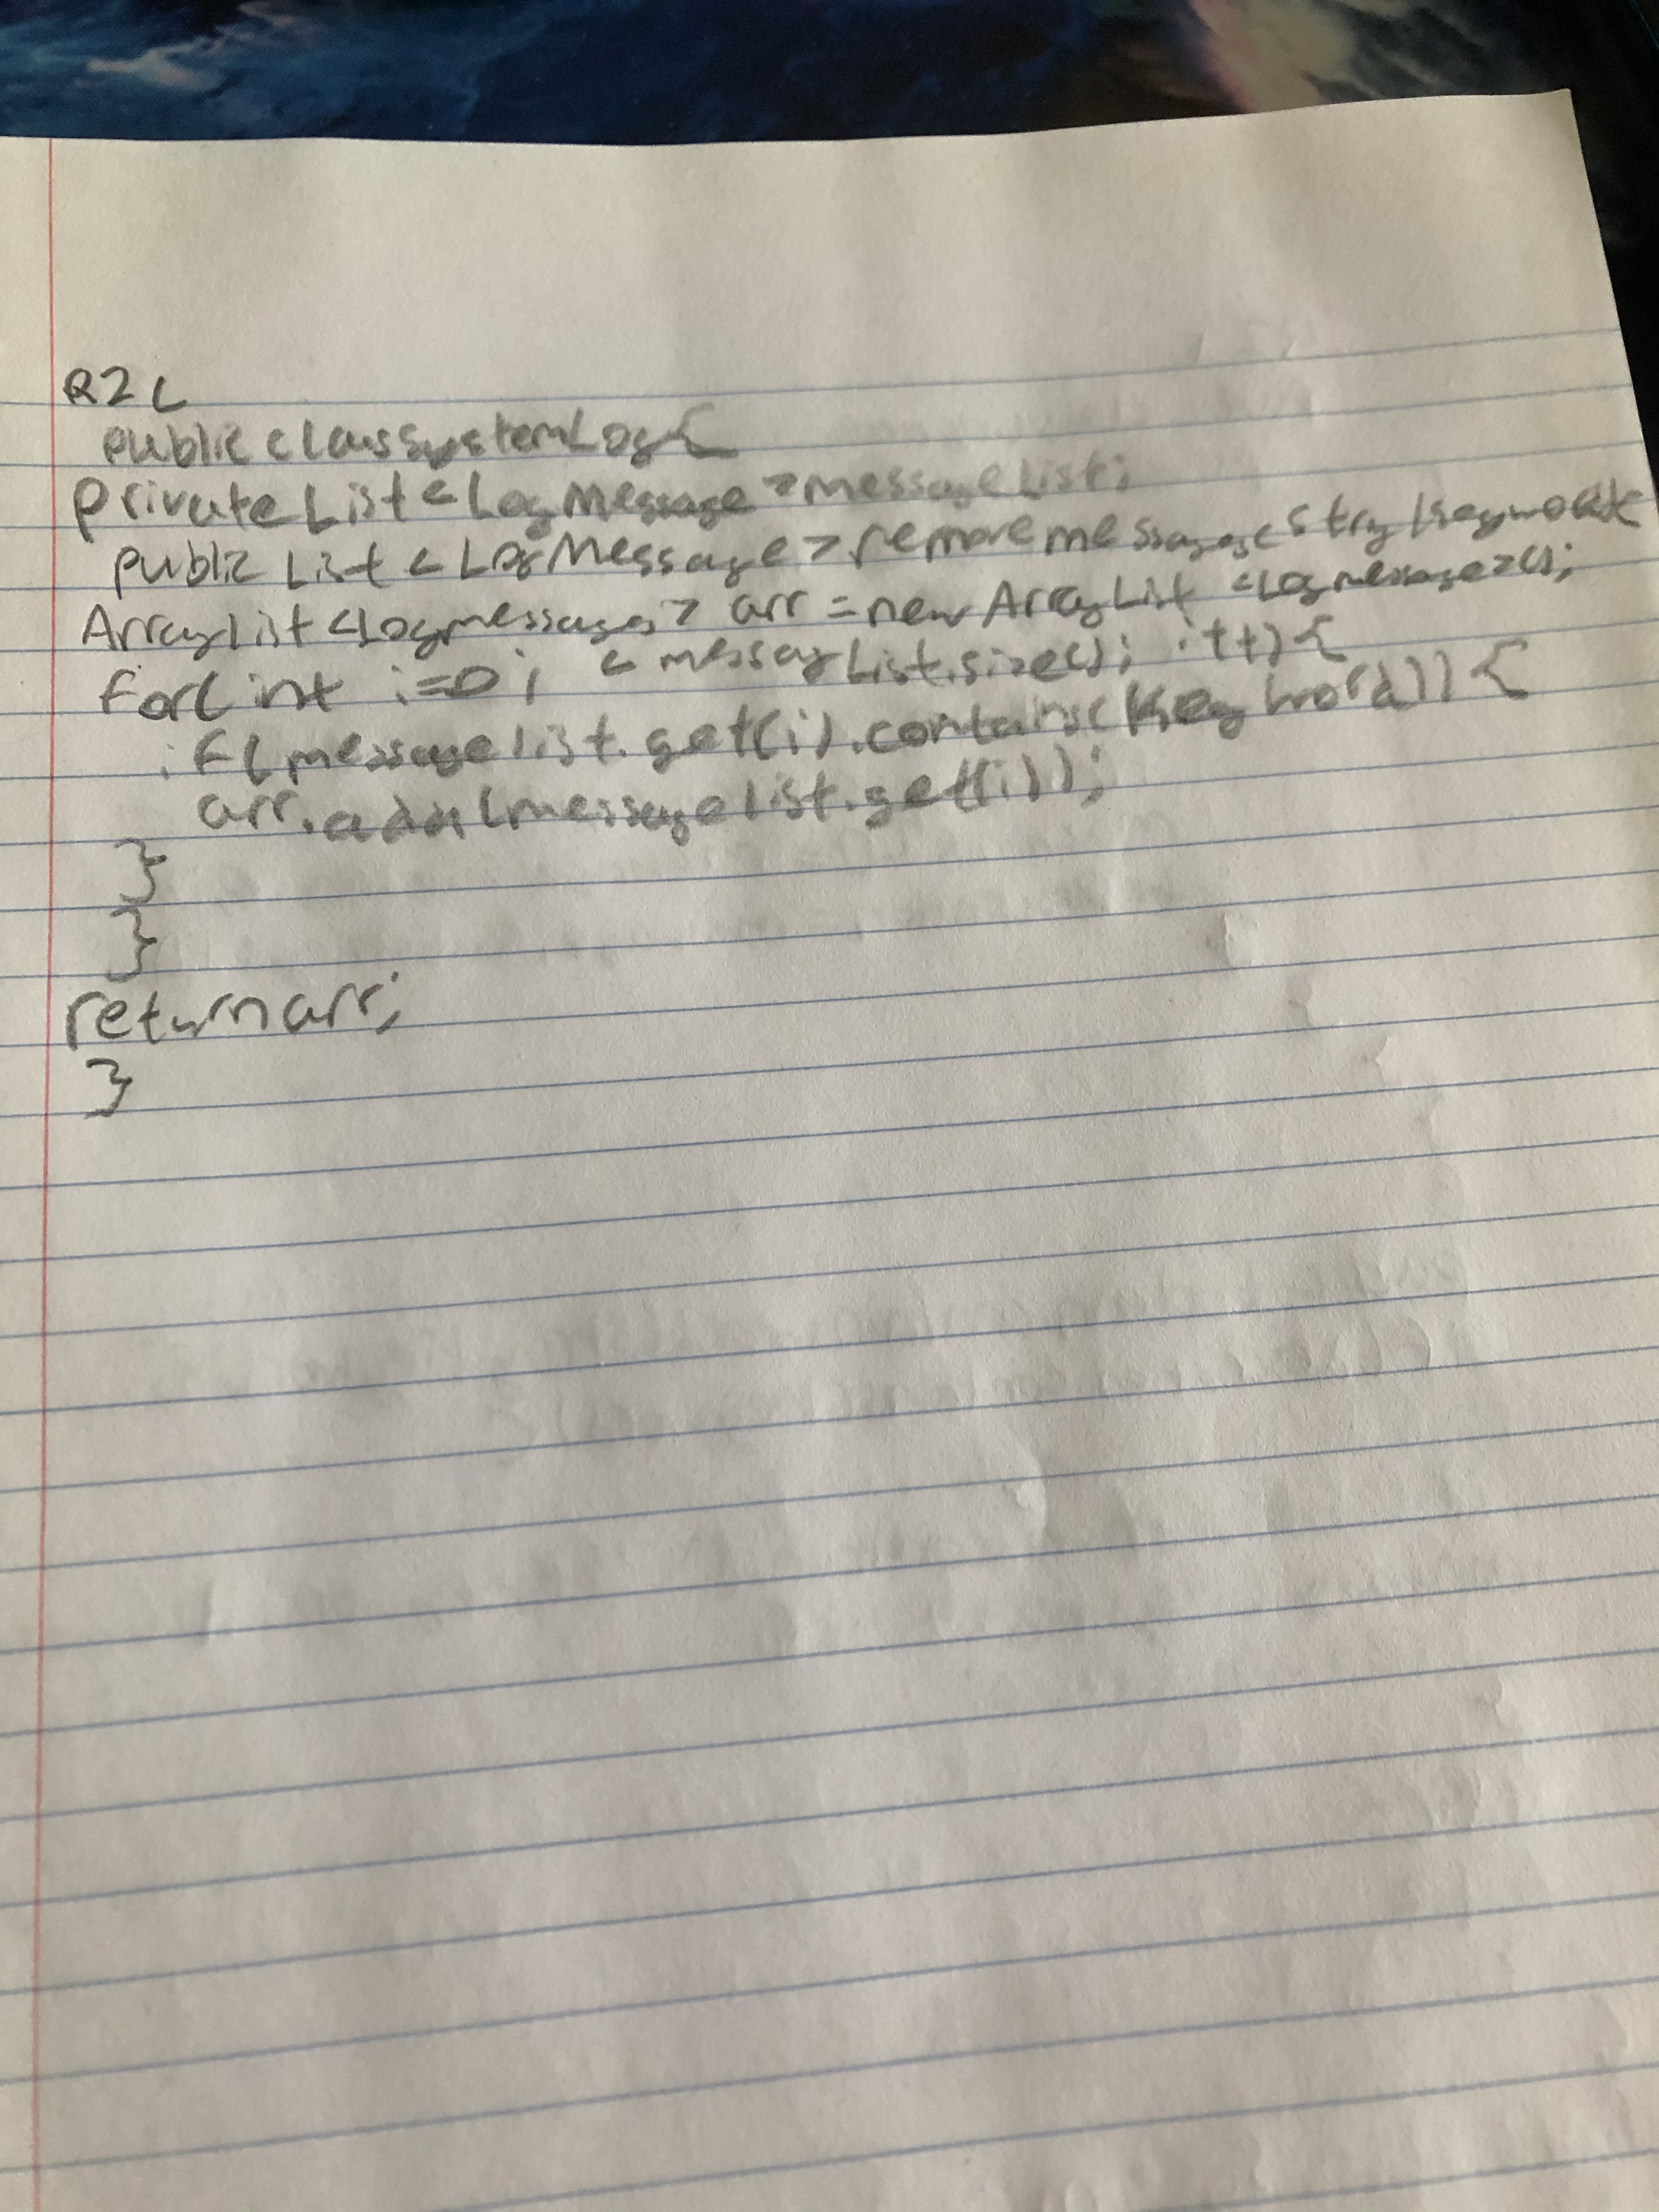 R2C
public class SystemLog{
private List<LogMessage>messageList;
public List<LogMessage>removemessages(String keyword){
ArrayList<Logmessages> arr = new ArrayList<Logmessage>();
for(int i=0; < messagList.size(); i++){
if(messagelist.get(i).contains(keyword)){
arr.add(messagelist.get(i));
}
}
return arr;
}